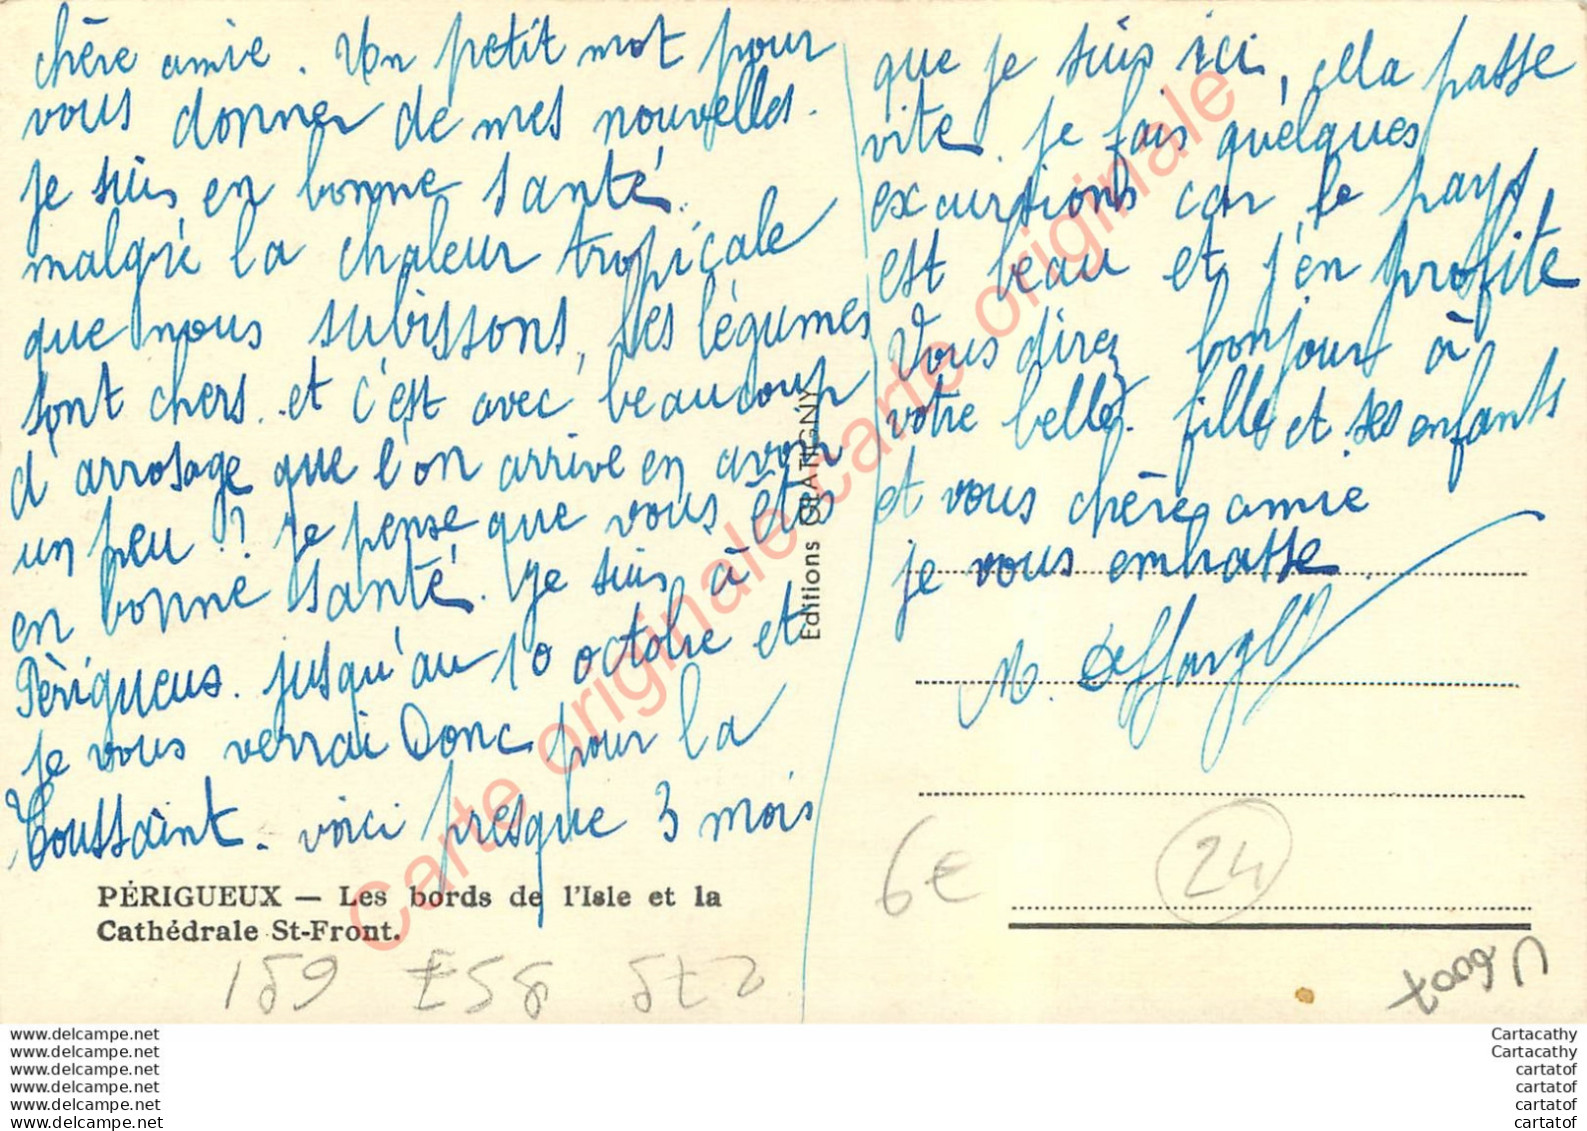 chère amie. Un petit mot pour
vous donner de mes nouvelles.
je suis en bonne santé.
malgré la chaleur tropicale
que nous subissons, les légumes
sont chers. et c'est avec beaucoup
d'arrosage que l'on arrive en avoir
un peu !! je pense que vous êtes
en bonne santé. je suis à
Périgueux. jusqu'au 10 octobre et
je vous verrai Donc pour la
Toussaint. voici presque 3 mois
PÉRIGUEUX — Les bords de l'Isle et la
Cathédrale St-Front.
Editions GRATIGNY
que je suis ici, ella passe
vite. je fais quelques
excursions car le pays
est beau et j'en profite
Vous direz bonjour à
votre belle. fille et ses enfants
et vous chère amie
je vous embrasse.
6€
24
Carte originale carte originale carte originale
www.delcampe.net
www.delcampe.net
www.delcampe.net
www.delcampe.net
www.delcampe.net
www.delcampe.net
Cartacathy
Cartacathy
cartatof
cartatof
cartatof
cartatof